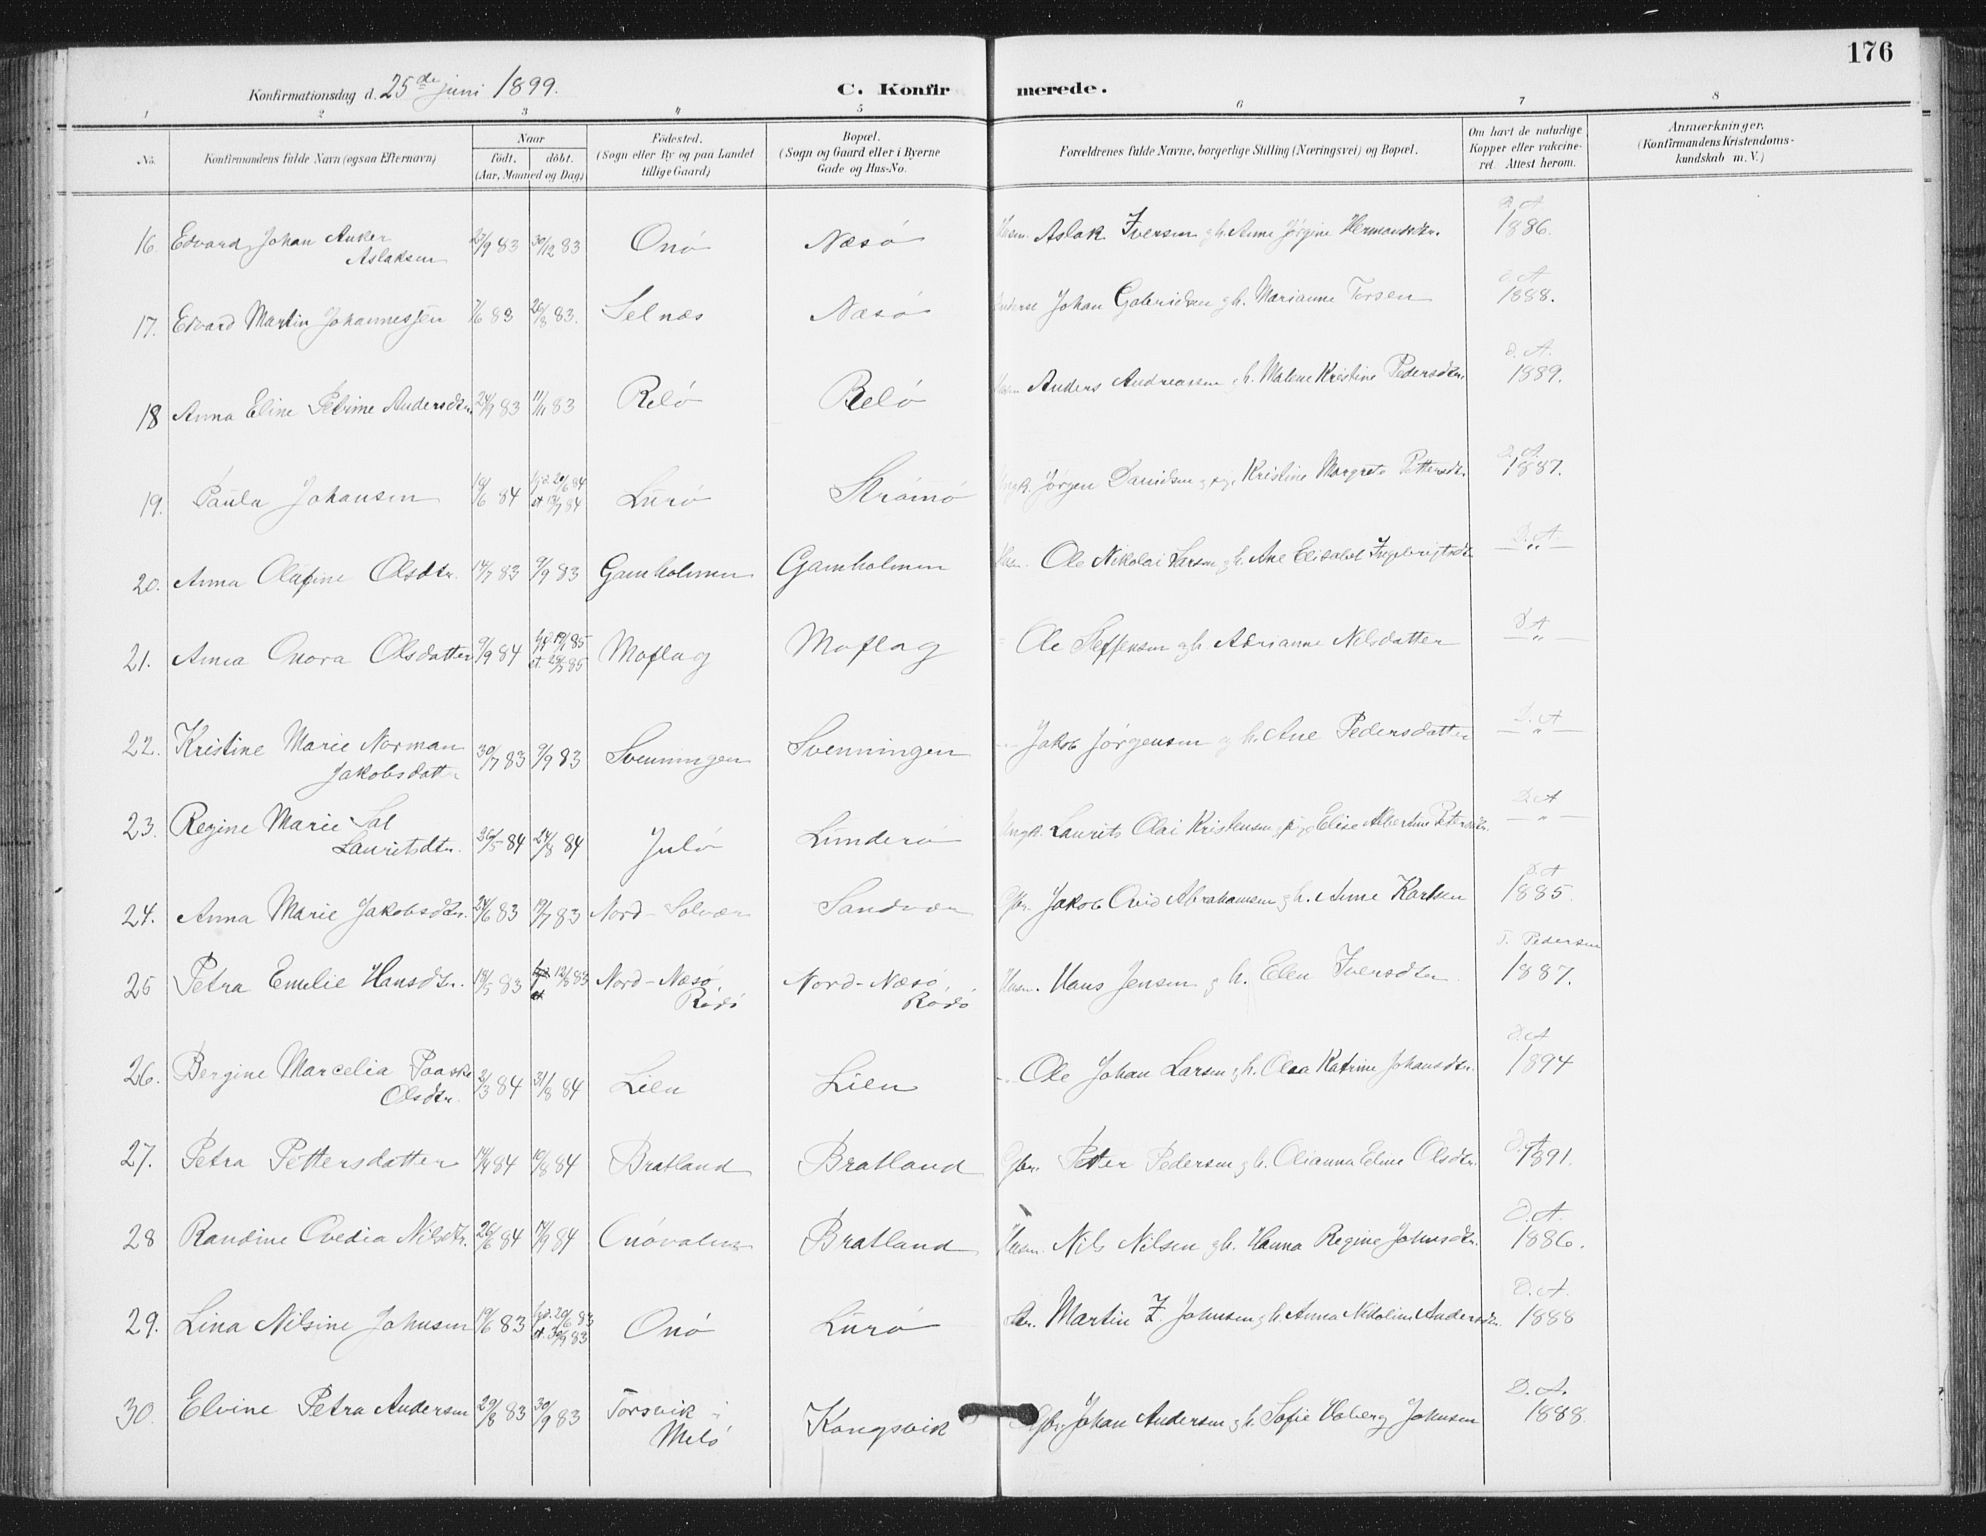 176
Konfirmationsdag d. 25de juni 1899.
C. Konfirmerede.
1 2 3 4 5 6 7 8
No.
Konfirmandens fulde Navn (ogsaa Efternavn)
Naar
født. døbt.
(Aar, Maaned og Dag)
Fødested.
(Sogn eller By og paa Landet
tillige Gaard)
Bopæl.
(Sogn og Gaard eller i Byerne
Gade og Hus-No.
Forældrenes fulde Navne, borgerlige Stilling (Næringsvei) og Bopæl.
Om havt de naturlige
Kopper eller vakcine-
ret. Attest herom.
Anmærkninger.
(Konfirmandens Kristendoms-
kundskab m. V.)
16. Edvard Johan Anker 30/12 83 Onø Næsø Husm. Aslak Iversen gh. Anne Jørgine Hermansdtr. D. A. 1886.
Aslaksen
17. Edvard Martin Johannessen 7/6 83 26/8 83. Selnæs Næsø Johan Gabrielsen gh. Marianne Torsen D. A. 1888.
18 Anna Eline Petrine Andersdtr. 83 11/11 83 Relø Relø Husm. Anders Andreassen gh. Malene Kristine Pedersdtr. D. A. 1889.
19. Paula Johansen 18/6 84 hjd. 20/6 84 Lurø Strømø Ungk. Jørgen Danielsen og pige Kristine Margrete Pettersdtr. D. A. 1887.
st. 84
20. Anna Olufine Olsdtr. 14/7 83 9/9 83 Gamholmen Gamholmen Husm. Ole Nikolai Larsen gh. Ane Elisabet Ingebrigtsdtr. D. A. — " —
21. Anna Onora Olsdatter 9/9 84 hjd. 85 Moflag Moflag Ole Steffensen gh. Adrianne Nilsdatter D. A. — " —
st. 85
22. Kristine Marie Norman 30/7 83 9/9 83 Svenningen Svenningen Jakob Jørgensen gh. Ane Pedersdatter D. A. — " —
Jakobsdatter
23. Regine Marie Sal 26/5 84 24/8 84 Julø Lunderø Ungk. Laurits Olai Kristensen og pige Elise Albertine Petersdtr. D. A. — " —
Lauritsdtr.
24. Anna Marie Jakobsdtr. 24/6 83 19/7 83 Nord-Solvær Sandvær Gbr. Jakob Ovid Abrahamsen gh. Anne Karlsen D. A. 1885.
25 Petra Emilie Hansdtr. 18/5 83 12/8 83 Nord-Næsø, Nord-Næsø, Husm. Hans Jensen gh. Elen Iversdtr. T. Pedersen 1887.
Rødø Rødø
26. Bergine Marcelia Paaske 2/3 84 31/8 84 Lien Lien Ole Johan Larsen gh. Olea Katrine Johansdtr. D. A. 1894
Olsdtr.
27. Petra Pettersdatter 84 10/8 84 Bratland Bratland Gbr. Peter Pedersen gh. Olianna Eline Olsdtr. D. A. 1891.
28 Randine Ovedia Nilsdtr. 26/6 84 84 Onøvalen Bratland Husm. Nils Nilsen gh. Hanna Regine Johnsdtr. D. A. 1886.
29. Lina Nilsine Johnsen 19/6 83 hjd. 20/6 83 Onø Lurø Martin Z. Johnsen gh. Anna Nikoline Andersdtr. D. A. 1888
st. 30/9 83
30. Elvine Petra Andersen 29/8 83 30/9 83 Torsvik i Kongsvik Gbr. Johan Andersen gh. Sofie Johnsen D. A. 1888.
Melø